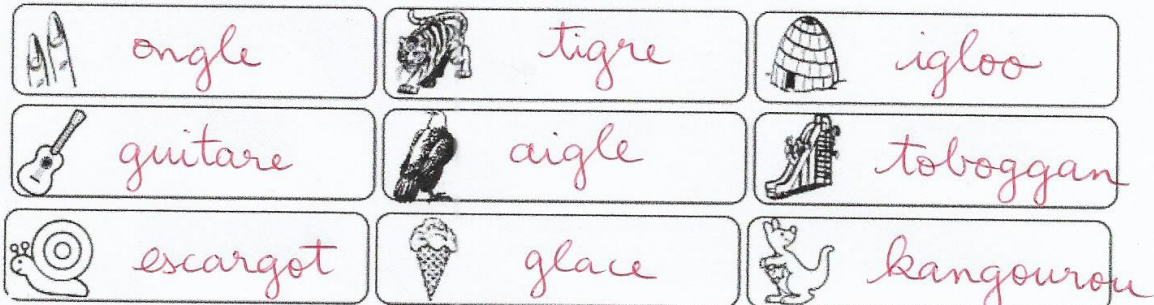 ongle tigre igloo
guitare aigle toboggan
escargot glace kangourou